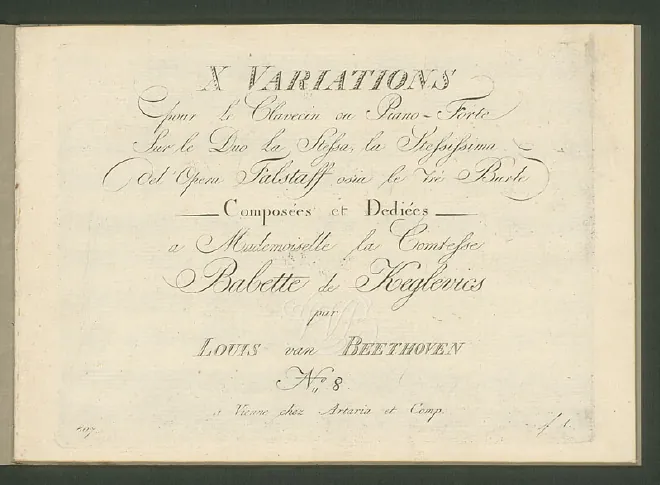 X VARIATIONS
pour le Clavecin ou Piano-Forte
Sur le Duo La Stessa, la Stessissima
del Opera Falstaff osia le tré Burle
Composées et Dediées
a Mademoiselle la Comtesse
Babette de Keglevics
par
LOUIS van BEETHOVEN
No. 8
a Vienne chez Artaria et Comp.